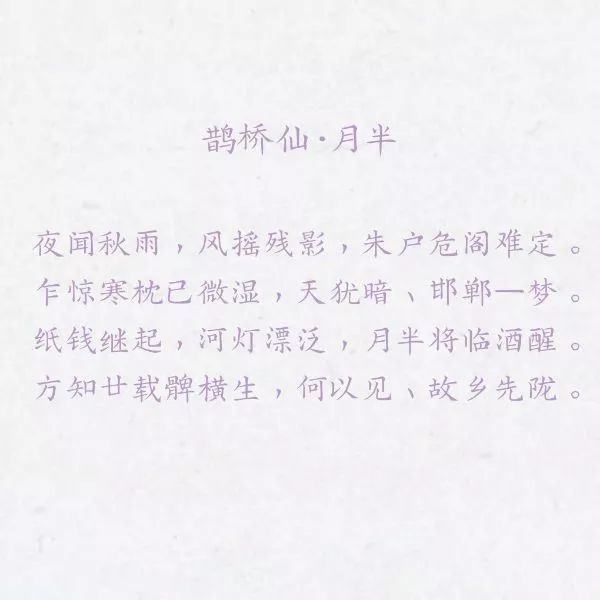 鹊桥仙·月半
夜闻秋雨，风摇残影，朱户危阁难定。
乍惊寒枕已微湿，天犹暗、邯郸一梦。
纸钱继起，河灯漂泛，月半将临酒醒。
方知廿载髀横生，何以见、故乡先陇。